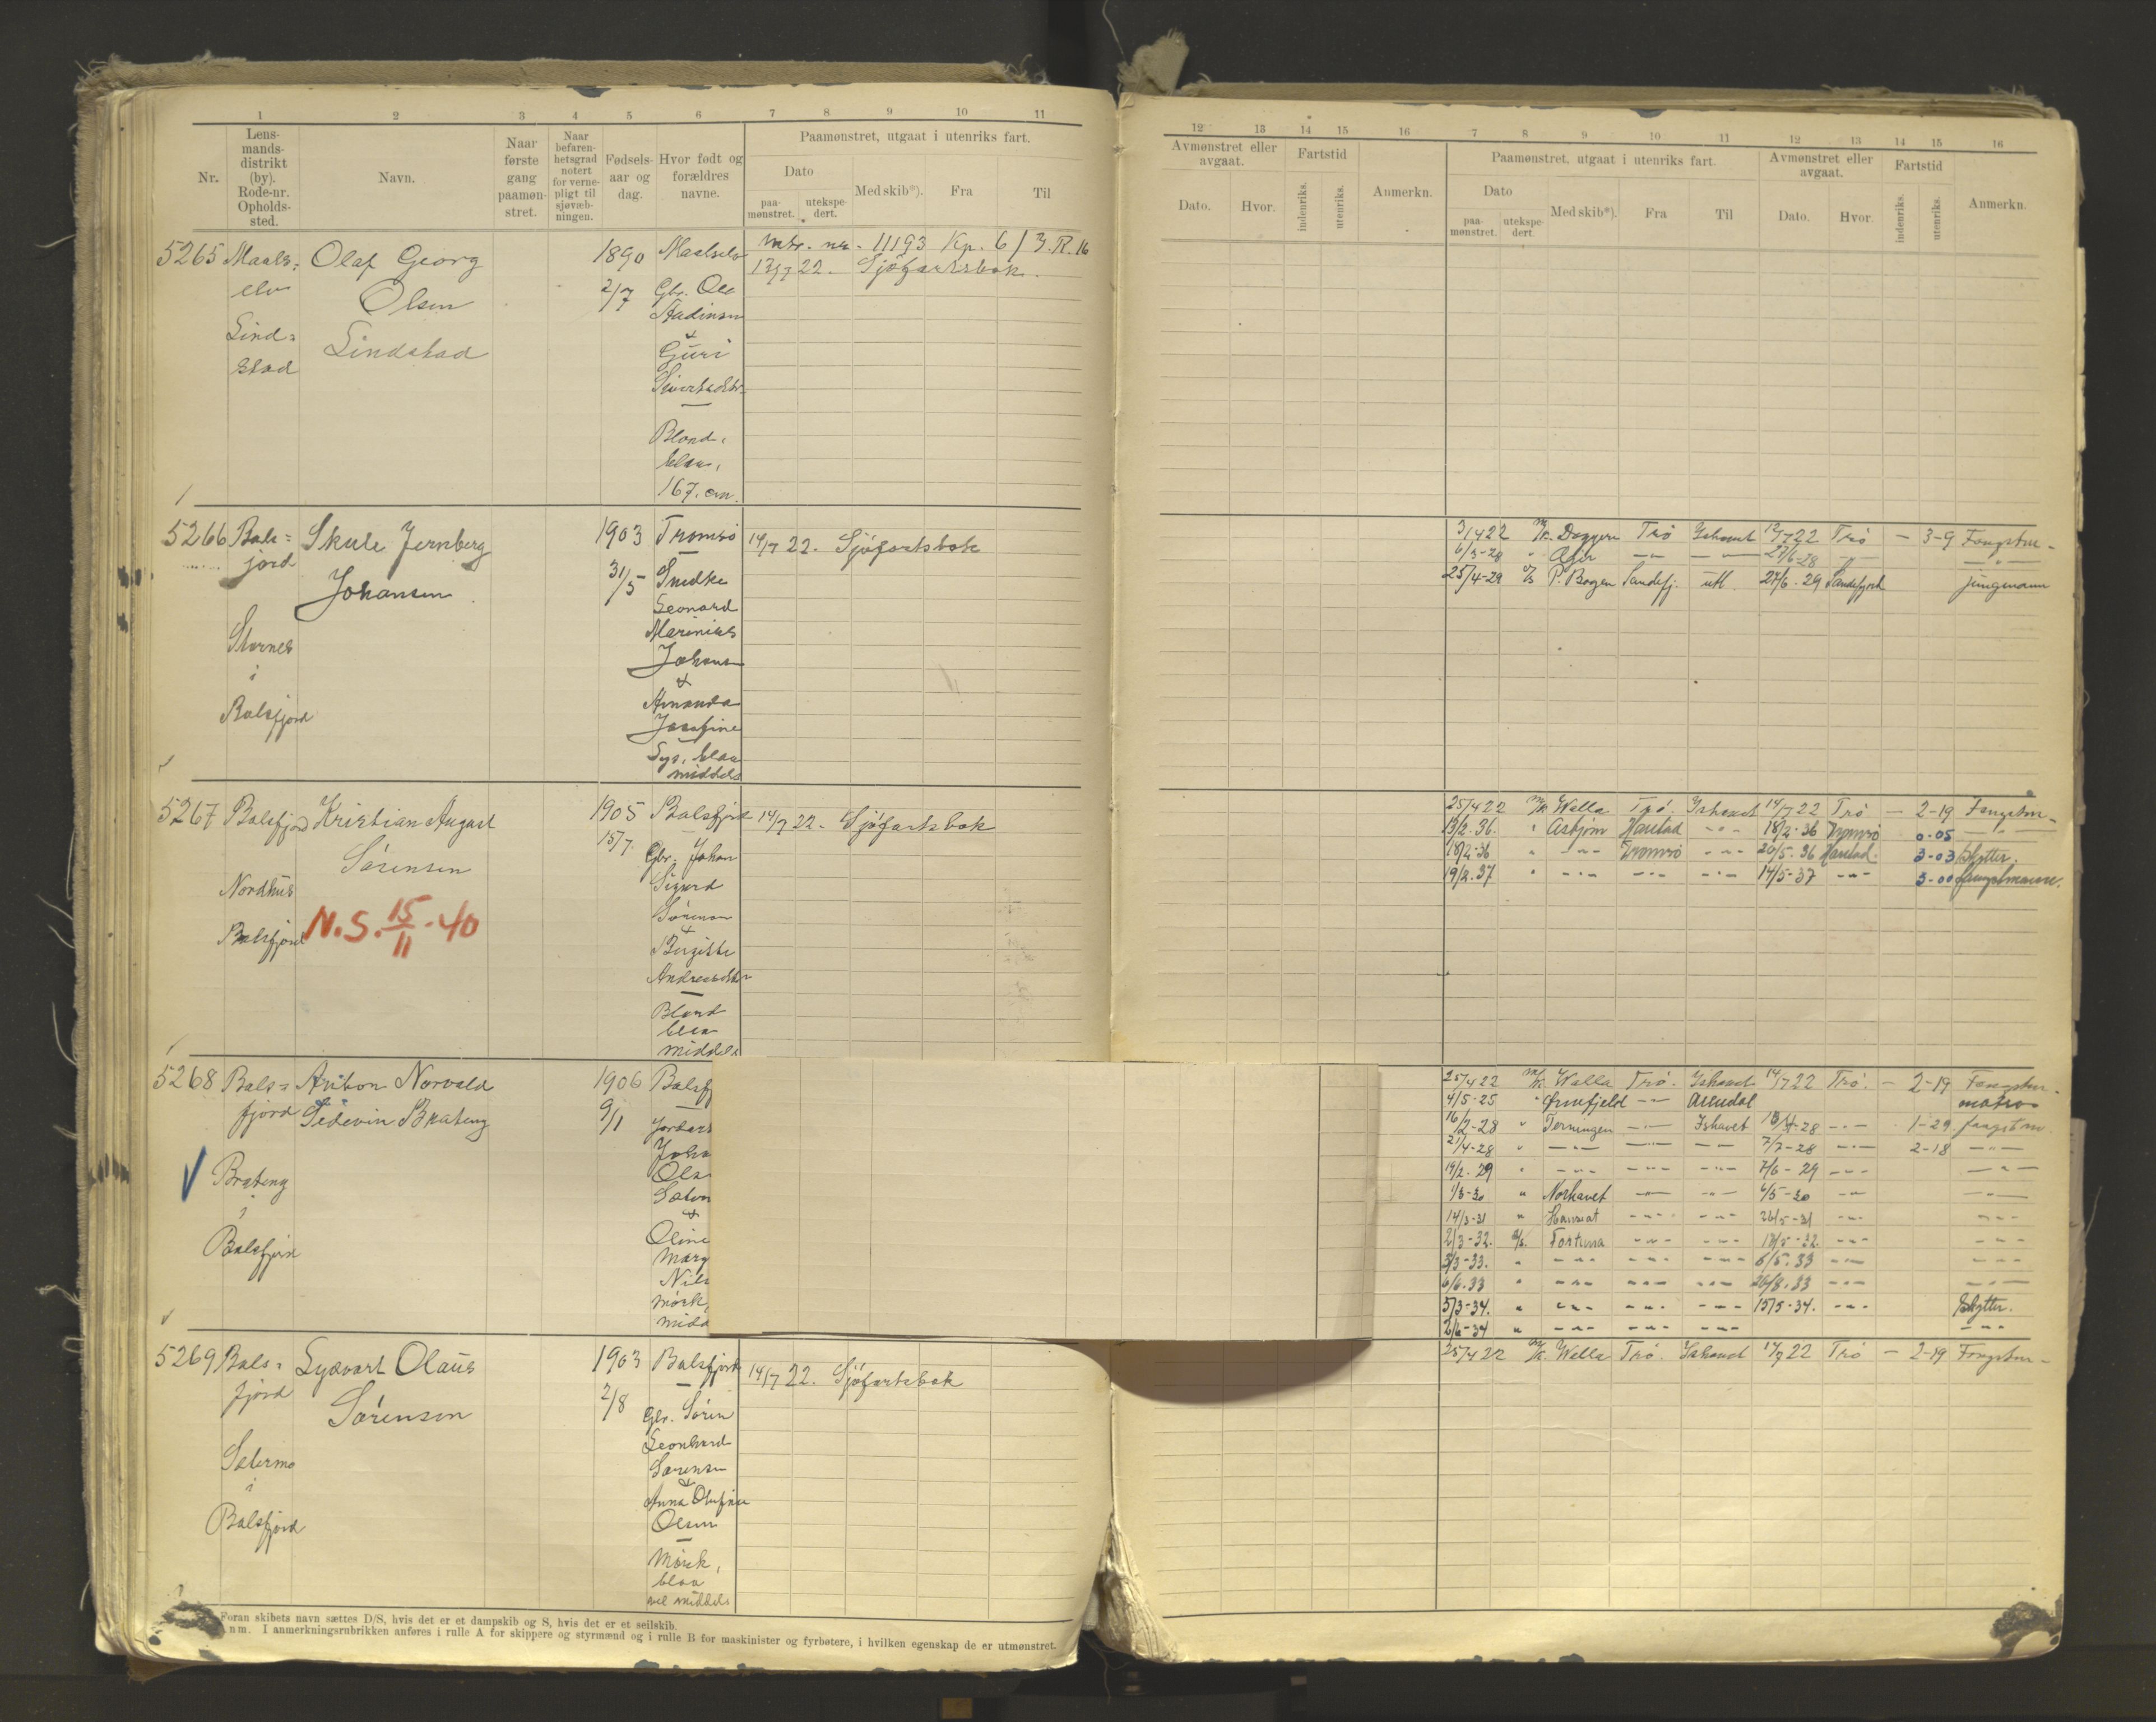 1 2 3 4 5 6 7 8 9 10 11
Nr.
Lens-
mands-
distrikt
(by).
Rode-nr.
Opholds-
sted.
Navn.
Naar
første
gang
paamøn-
stret.
Naar
befaren-
hetsgrad
notert
for verne-
pligt til
sjøvæb-
ningen.
Fødsels-
aar og
dag.
Hvor født og
forældres
navne.
Paamønstret, utgaat i utenriks fart.
Dato
paa-
mønstret.
utekspe-
dert.
Med skib*).
Fra
Til
5265
Maals=
elv
Lind=
stad
Olaf Georg
Olsen
Lindstad
1890
2/7
Maalselv
Gbr. Ole
Guri
Blond,
blaa,
167. cm.
mtr. nr. 11193 Kp. 6 / 3. R. 16
13/7 22. Sjöfartsbok.
5266
Bals=
fjord
Stornes
i
Balsfjord
Skule Jernberg
Johansen
1903
31/5
Tromsö
Snedke
Leonard
Marinius
Johans
&
Amanda
Josefine
Lys, blaa
middels
14/7 22. Sjöfartsbok
5267
Balsfjord
Nordhus
Balsfjord
Kristian August
Sörensen
N.S. 15/11 - 40
1905
15/7
Balsfjord
Gbr. Johan
Sigurd
Sörensen
&
Bergitte
Andreasdtr
Blond
blaa
middels
14/7 22. Sjöfartsbok
5268
Bals=
fjord
Brateng
i
Balsfjord
Anton Norvald
Sedevin Brateng
1906
9/1
Balsfj
Joha
Ols
&
Oline
Marg
Nils
mörk,
midd
5269
Bals=
fjord
i
Balsfjord
Sydvart Olaus
Sörensen
1903
2/8
Balsfjord
Gbr. Sören
Leonhard
Sörensen
&
Anna Olufine
Olsen
Mörk,
blaa
vel middels
14/7 22. Sjöfartsbok
Foran skibets navn sættes D/S, hvis det er et dampskib og S, hvis det er et seilskib.
nm. I anmerkningsrubrikken anføres i rulle A for skippere og styrmænd og i rulle B for maskinister og fyrbøtere, i hvilken egenskap de er utmønstret.
12 13 14 15 16 7 8 9 10 11 12 13 14 15 16
Avmønstret eller
avgaat.
Dato.
Hvor.
Fartstid
indenriks.
utenriks.
Anmerkn.
Paamønstret, utgaat i utenriks fart.
Dato
paa-
mønstret.
utekspe-
dert.
Med skib*).
Fra
Til
Avmønstret eller
avgaat.
Dato.
Hvor.
Fartstid
indenriks.
utenriks.
Anmerkn.
3/4 22 M/K. Trö Ishavet 12/7 22 Trö — 3-9 Fangstm-
6/3-28 " — " — — " — 27/6-28 — " —
25/4-29 Sandefj. utl. 27/6-29 Sandefjord jungmann
25/4 22 M/K Wella Trö. Ishavet 14/7 22 Trö — 2-19 Fangstm-
13/2.36. " Asbjörn Harstad - " - 18/2-36 Tromsö 0-05 — " —
18/2-36 " - " - Tromsö - " - 20/5.36 Harstad. 3-03 skytter.
19/2.37 " - " - - " - - " - 14/5-37 - " - 3-00 fangstmann.
25/4 22 M/K. Wella Trö. Ishavet 14/7 22 Trö. — 2-19 Fangstm-
4/5-25 " - " - Arendal matros
16/2-28 " Terningen - " - Ishavet -28 - " - 1-29 fangstm.
21/4-28 " - " - - " - - " - 7/7-28 - " - 2-18 - " -
19/2.29 " - " - - " - - " - 7/6-29 - " - - " -
1/3-30 " Norhavet - " - - " - 6/5-30 - " - - " -
14/3-31 " - " - - " - 26/5-31 - " - - " -
2/3-32. Fortuna - " - - " - 18/5-32. - " - - " -
3/3-33. " - " - - " - - " - 6/5.33 - " - - " -
6/6.33 " - " - - " - - " - 26/8.33 - " - - " -
5/3-34. " - " - - " - - " - 15/5-34. - " - skytter.
2/6-34 " - " - - " - - " - - " -
25/4 22 M/K. Wella Trö. Ishavet 14/7 22 Trö — 2-19 Fangstm-